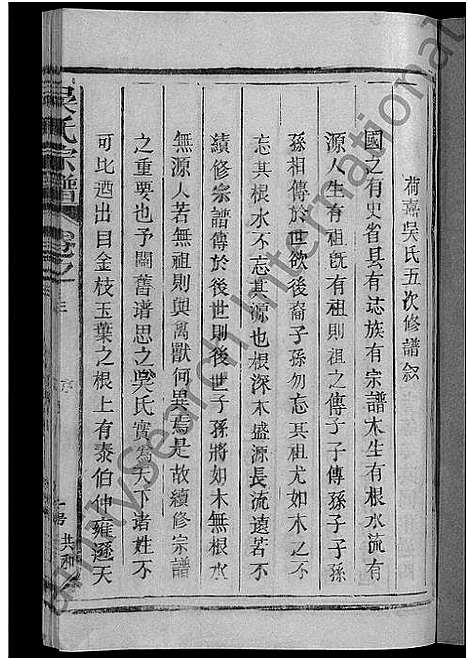 荷熹吳氏五次修譜叙
國之有史省县有誌族有宗譜木生有根水流有
源人生有祖旣有祖則祖之傳子子傳孫子子孫
孫相傳於世欲後裔子孫勿忘其祖尤如木之不
忘其根水不忘其源也根深木盛源長流遠若不
續修宗譜傳於後世則後世子孫將如木無根水
無源人若無祖則與禽獸何異焉是故續修宗譜
之重要也予閱舊谱思之吳氏實為天下诸姓不
可比迺出目金枝玉葉之根上有泰伯仲雍遜天
吳氏宗譜
卷之
共和
MySearch International